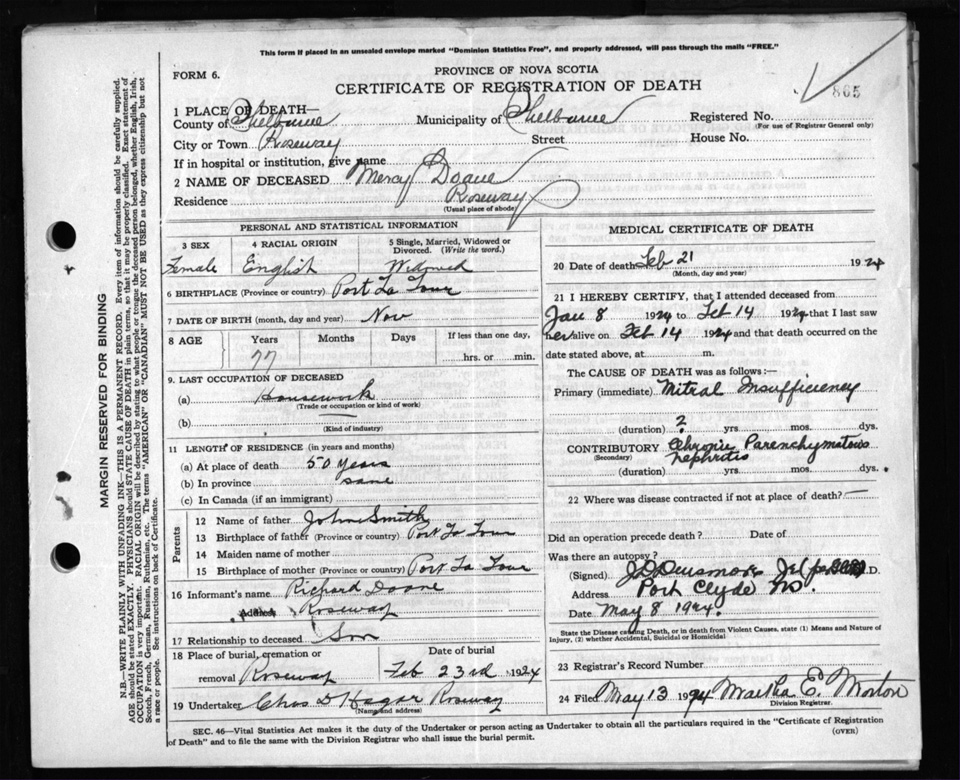 This form if placed in an unsealed envelope marked "Dominion Statistics Free", and properly addressed, will pass through the mails "FREE."
FORM 6.
PROVINCE OF NOVA SCOTIA
CERTIFICATE OF REGISTRATION OF DEATH
865
1 PLACE OF DEATH—
County of Shelburne Municipality of Shelburne Registered No.
(For use of Registrar General only)
City or Town Roseway Street House No.
If in hospital or institution, give name
2 NAME OF DECEASED Mercy Doane
Residence Roseway
(Usual place of abode)
PERSONAL AND STATISTICAL INFORMATION
3 SEX 4 RACIAL ORIGIN 5 Single, Married, Widowed or Divorced. (Write the word.)
Female English Widowed
6 BIRTHPLACE (Province or country) Port La Tour
7 DATE OF BIRTH (month, day and year) Nov
8 AGE Years Months Days If less than one day,
77 hrs. or min.
9. LAST OCCUPATION OF DECEASED
(a) Housework
(Trade or occupation or kind of work)
(b)
(Kind of industry)
11 LENGTH OF RESIDENCE (in years and months)
(a) At place of death 50 years
(b) In province same
(c) In Canada (if an immigrant)
Parents
12 Name of father John Smith
13 Birthplace of father (Province or country) Port La Tour
14 Maiden name of mother
15 Birthplace of mother (Province or country) Port La Tour
16 Informant's name Richard Doane
Address Roseway
17 Relationship to deceased Son
18 Place of burial, cremation or removal Roseway
Date of burial
Feb 23rd 1924
19 Undertaker Chas D Hagar Roseway
(Name and address)
MEDICAL CERTIFICATE OF DEATH
20 Date of death Feb 21 1924
(Month, day and year)
21 I HEREBY CERTIFY, that I attended deceased from
Jan 8 1924 to Feb 14 1924 that I last saw
her alive on Feb 14 1924 and that death occurred on the
date stated above, at m.
The CAUSE OF DEATH was as follows:—
Primary (immediate) Mitral Insufficiency
(duration) ? yrs. mos. dys.
CONTRIBUTORY Chronic Parenchymatous
(Secondary) Nephritis
(duration) yrs. mos. dys.
22 Where was disease contracted if not at place of death? —
Did an operation precede death? Date of
Was there an autopsy?
(Signed) D.
Address Port Clyde N.S.
Date May 8 1924.
State the Disease causing Death, or in death from Violent Causes, state (1) Means and Nature of Injury, (2) whether Accidental, Suicidal or Homicidal
23 Registrar's Record Number
24 Filed May 13 1924 Martha E. Morton
Division Registrar.
SEC. 46—Vital Statistics Act makes it the duty of the Undertaker or person acting as Undertaker to obtain all the particulars required in the "Certificate of Registration
of Death" and to file the same with the Division Registrar who shall issue the burial permit. (OVER)
MARGIN RESERVED FOR BINDING
N.B.—WRITE PLAINLY WITH UNFADING INK—THIS IS A PERMANENT RECORD. Every item of information should be carefully supplied.
AGE should be stated EXACTLY. PHYSICIANS should STATE CAUSE OF DEATH in plain terms, so that it may be properly classified. Exact statement of
OCCUPATION is very important. RACIAL ORIGIN will be described by stating to what people or tongue the deceased person belonged, whether English, Irish,
Scotch, French, German, Russian, Ruthenian, etc. The terms "AMERICAN" or "CANADIAN" MUST NOT BE USED as they express citizenship but not
a race or people. See instructions on back of Certificate.